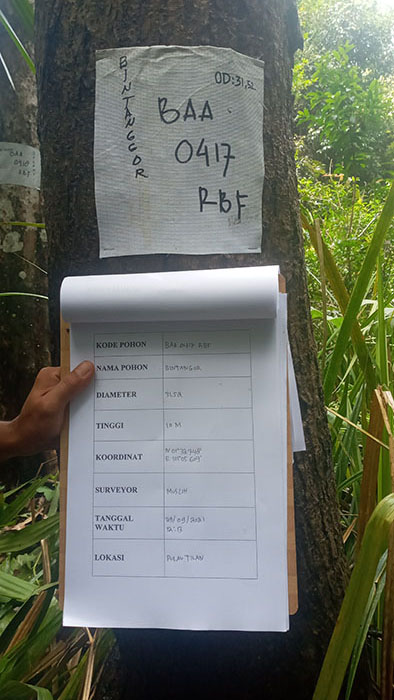 BINTANGGOR
OD:31,52
BAA
0417
RBF
BAA
0419
RBF
KODE POHON BAA 0417 RBF
NAMA POHON BINTANGGOR
DIAMETER 31,52
TINGGI 10 M
KOORDINAT
SURVEYOR MUSLIH
TANGGAL WAKTU 29/09/2021
LOKASI